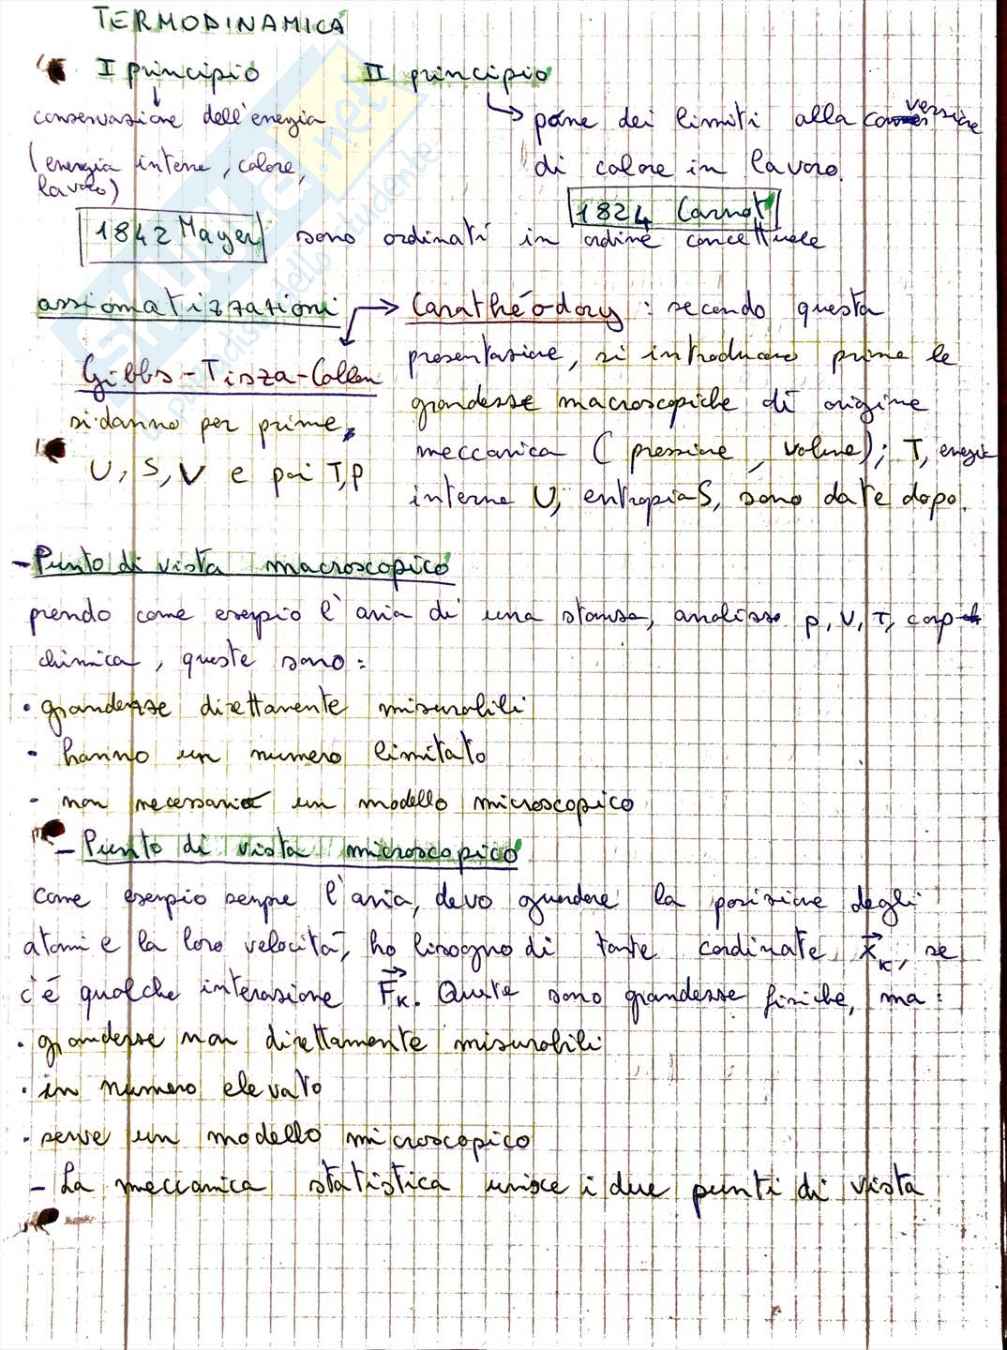 TERMODINAMICA
I principio
II principio
conservazione dell'energia
(energia interne, calore,
lavoro)
pone dei limiti alla conversione
di calore in lavoro.
1842 Mayer
1824 Carnot
sono ordinati in ordine concettuale
assiomatizzazioni
Gibbs-Tisza-Callen
si danno per prime
U, S, V e poi T, P
Carathéodory : secondo questa
presentazione, si introducono prime le
grandezze macroscopiche di origine
meccanica ( pressione, volume); T, energia
interne U, entropia S, sono date dopo.
- Punto di vista macroscopico
prendo come esempio l'aria di una stanza, analizzo p, V, T, comp
chimica, queste sono:
• grandezze direttamente misurabili
• hanno un numero limitato
- non necessario un modello microscopico
- Punto di vista microscopico
come esempio sempre l'aria, devo guardare la posizione degli
atomi e la loro velocità, ho bisogno di tante cordinate x⃗ₖ, se
c'è qualche interazione F⃗ₖ. Queste sono grandezze fisiche, ma:
• grandezze non direttamente misurabili
• in numero elevato
• serve un modello microscopico
- La meccanica statistica unisce i due punti di vista